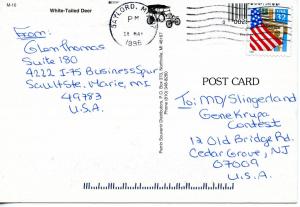 M-16
White-Tailed Deer
GAYLORD, MI
PM
18 MAY
1996
32
From:
Glen Thomas
Suite 180
4222 I-75 Business Spur
Sault Ste. Marie, MI
49783
U.S.A.
POST CARD
To: MD/Slingerland
Gene Krupa
Contest
12 Old Bridge Rd.
Cedar Grove, NJ
07009
U.S.A.